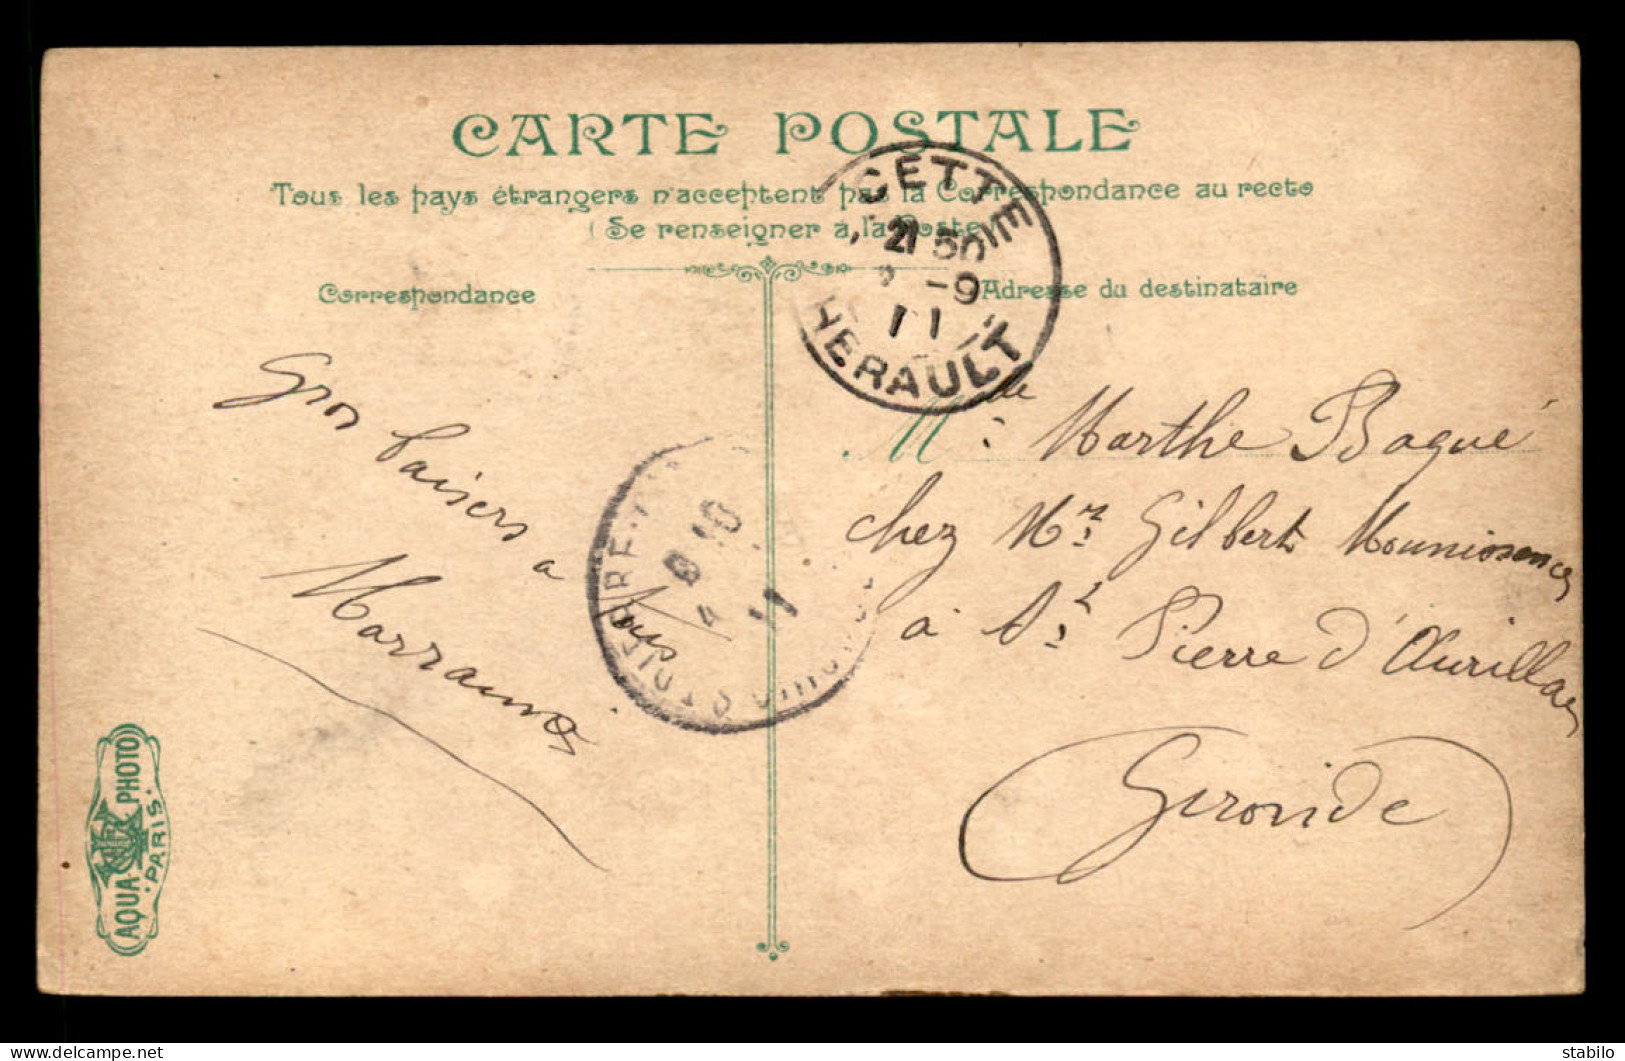 CARTE POSTALE
Tous les pays étrangers n'acceptent pas la Correspondance au recto
(Se renseigner à la Poste)
Correspondance
Adresse du destinataire
CETTE
21 50
-9
11
HERAULT
Gros baisers a tous
8 10
4
11
Mlle Marthe Bagué
chez Mr Gilbert
à St Pierre d'Aurillac
Gironde
AQUA PHOTO
PARIS
stabilo www.delcampe.net